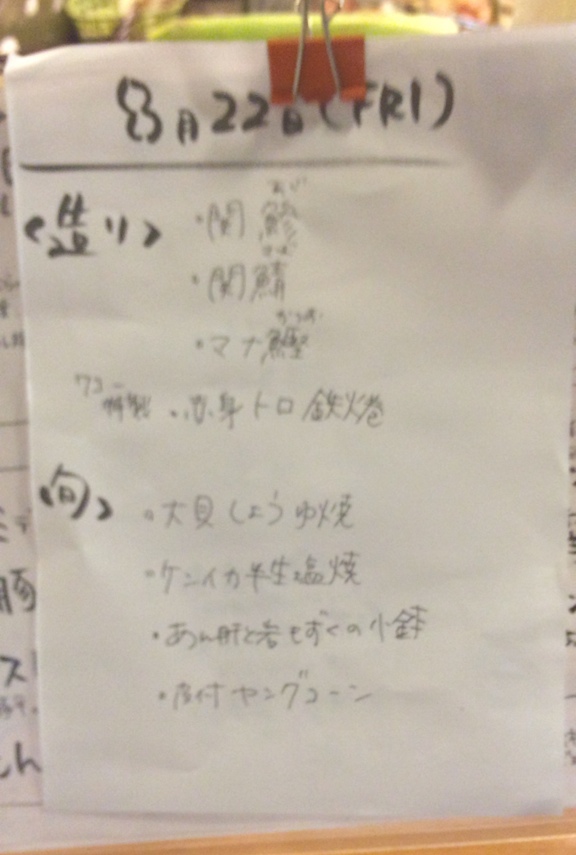 8月22日(FRI)
<造り>
あじ
・関鯵
さば
・関鯖
かつお
・マナ鰹
特製・赤身トロ鉄火巻
<旬>
・大貝しょうゆ焼
・ケンイカ半生塩焼
・あん肝と岩もずくの小鉢
・皮付ヤングコーン